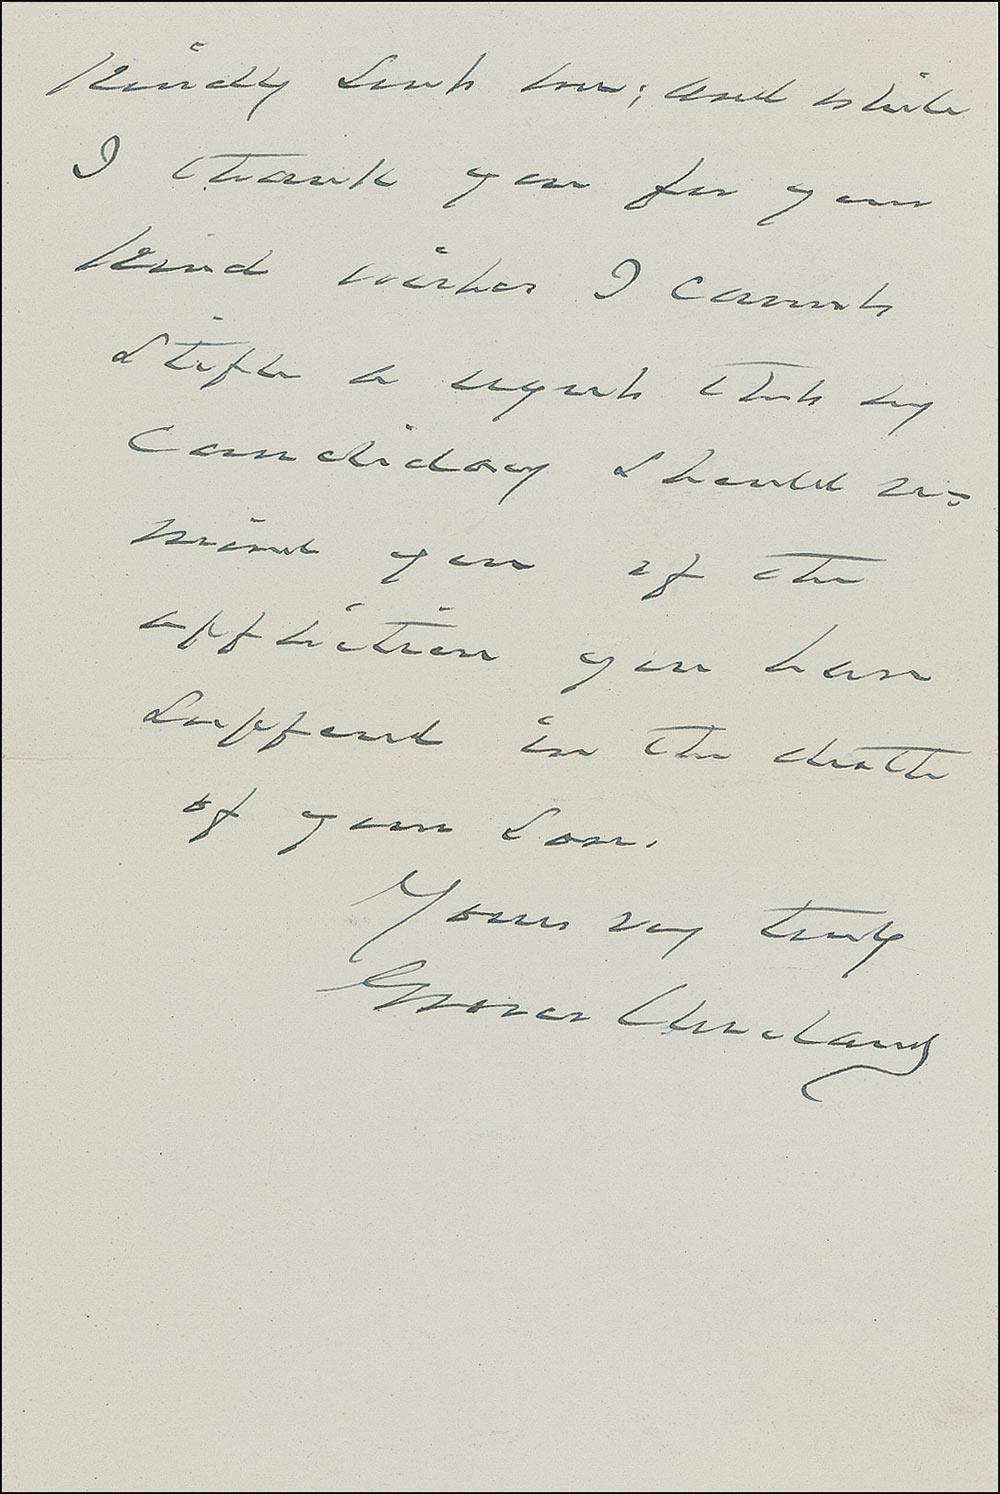 kindly sent me; and while
I thank you for your
kind wishes I cannot
stifle a regret that my
candidacy should re=
mind you of the
affliction you have
suffered in the death
of your son.
Yours very truly
Grover Cleveland